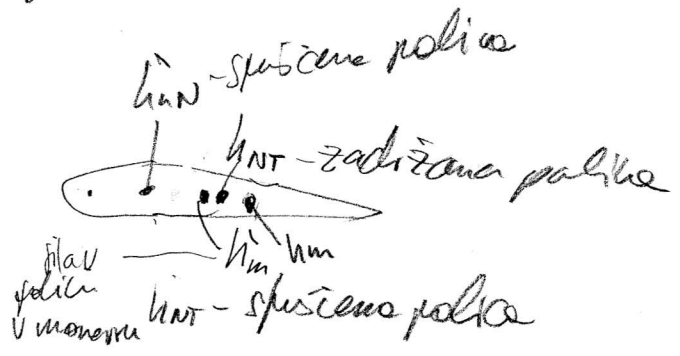 hmN - spuščena palica
hNT - zadržana palica
sila u palici u manevru
hm hm
hNT - spuščena palica